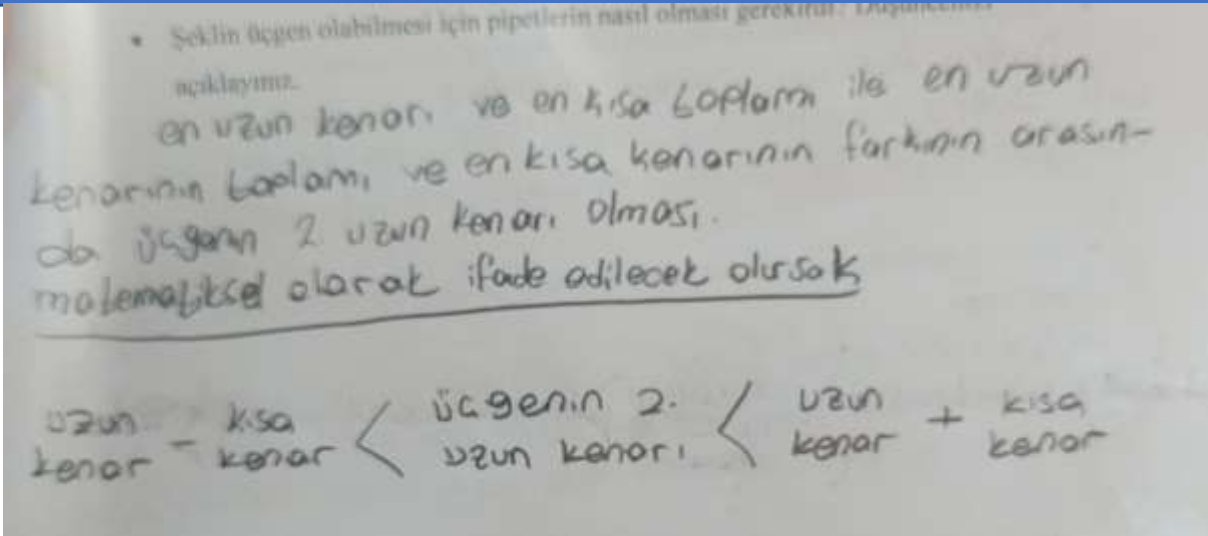 • Şeklin üçgen olabilmesi için pipetlerin nasıl olması gerekir?
açıklayınız.
en uzun kenarı ve en kısa toplamı ile en uzun
kenarının toplamı ve en kısa kenarının farkının arasın-
da üçgenin 2 uzun kenarı olması.
matematiksel olarak ifade edilecek olursak
uzun kenar - kısa kenar < üçgenin 2. uzun kenarı < uzun kenar + kısa kenar